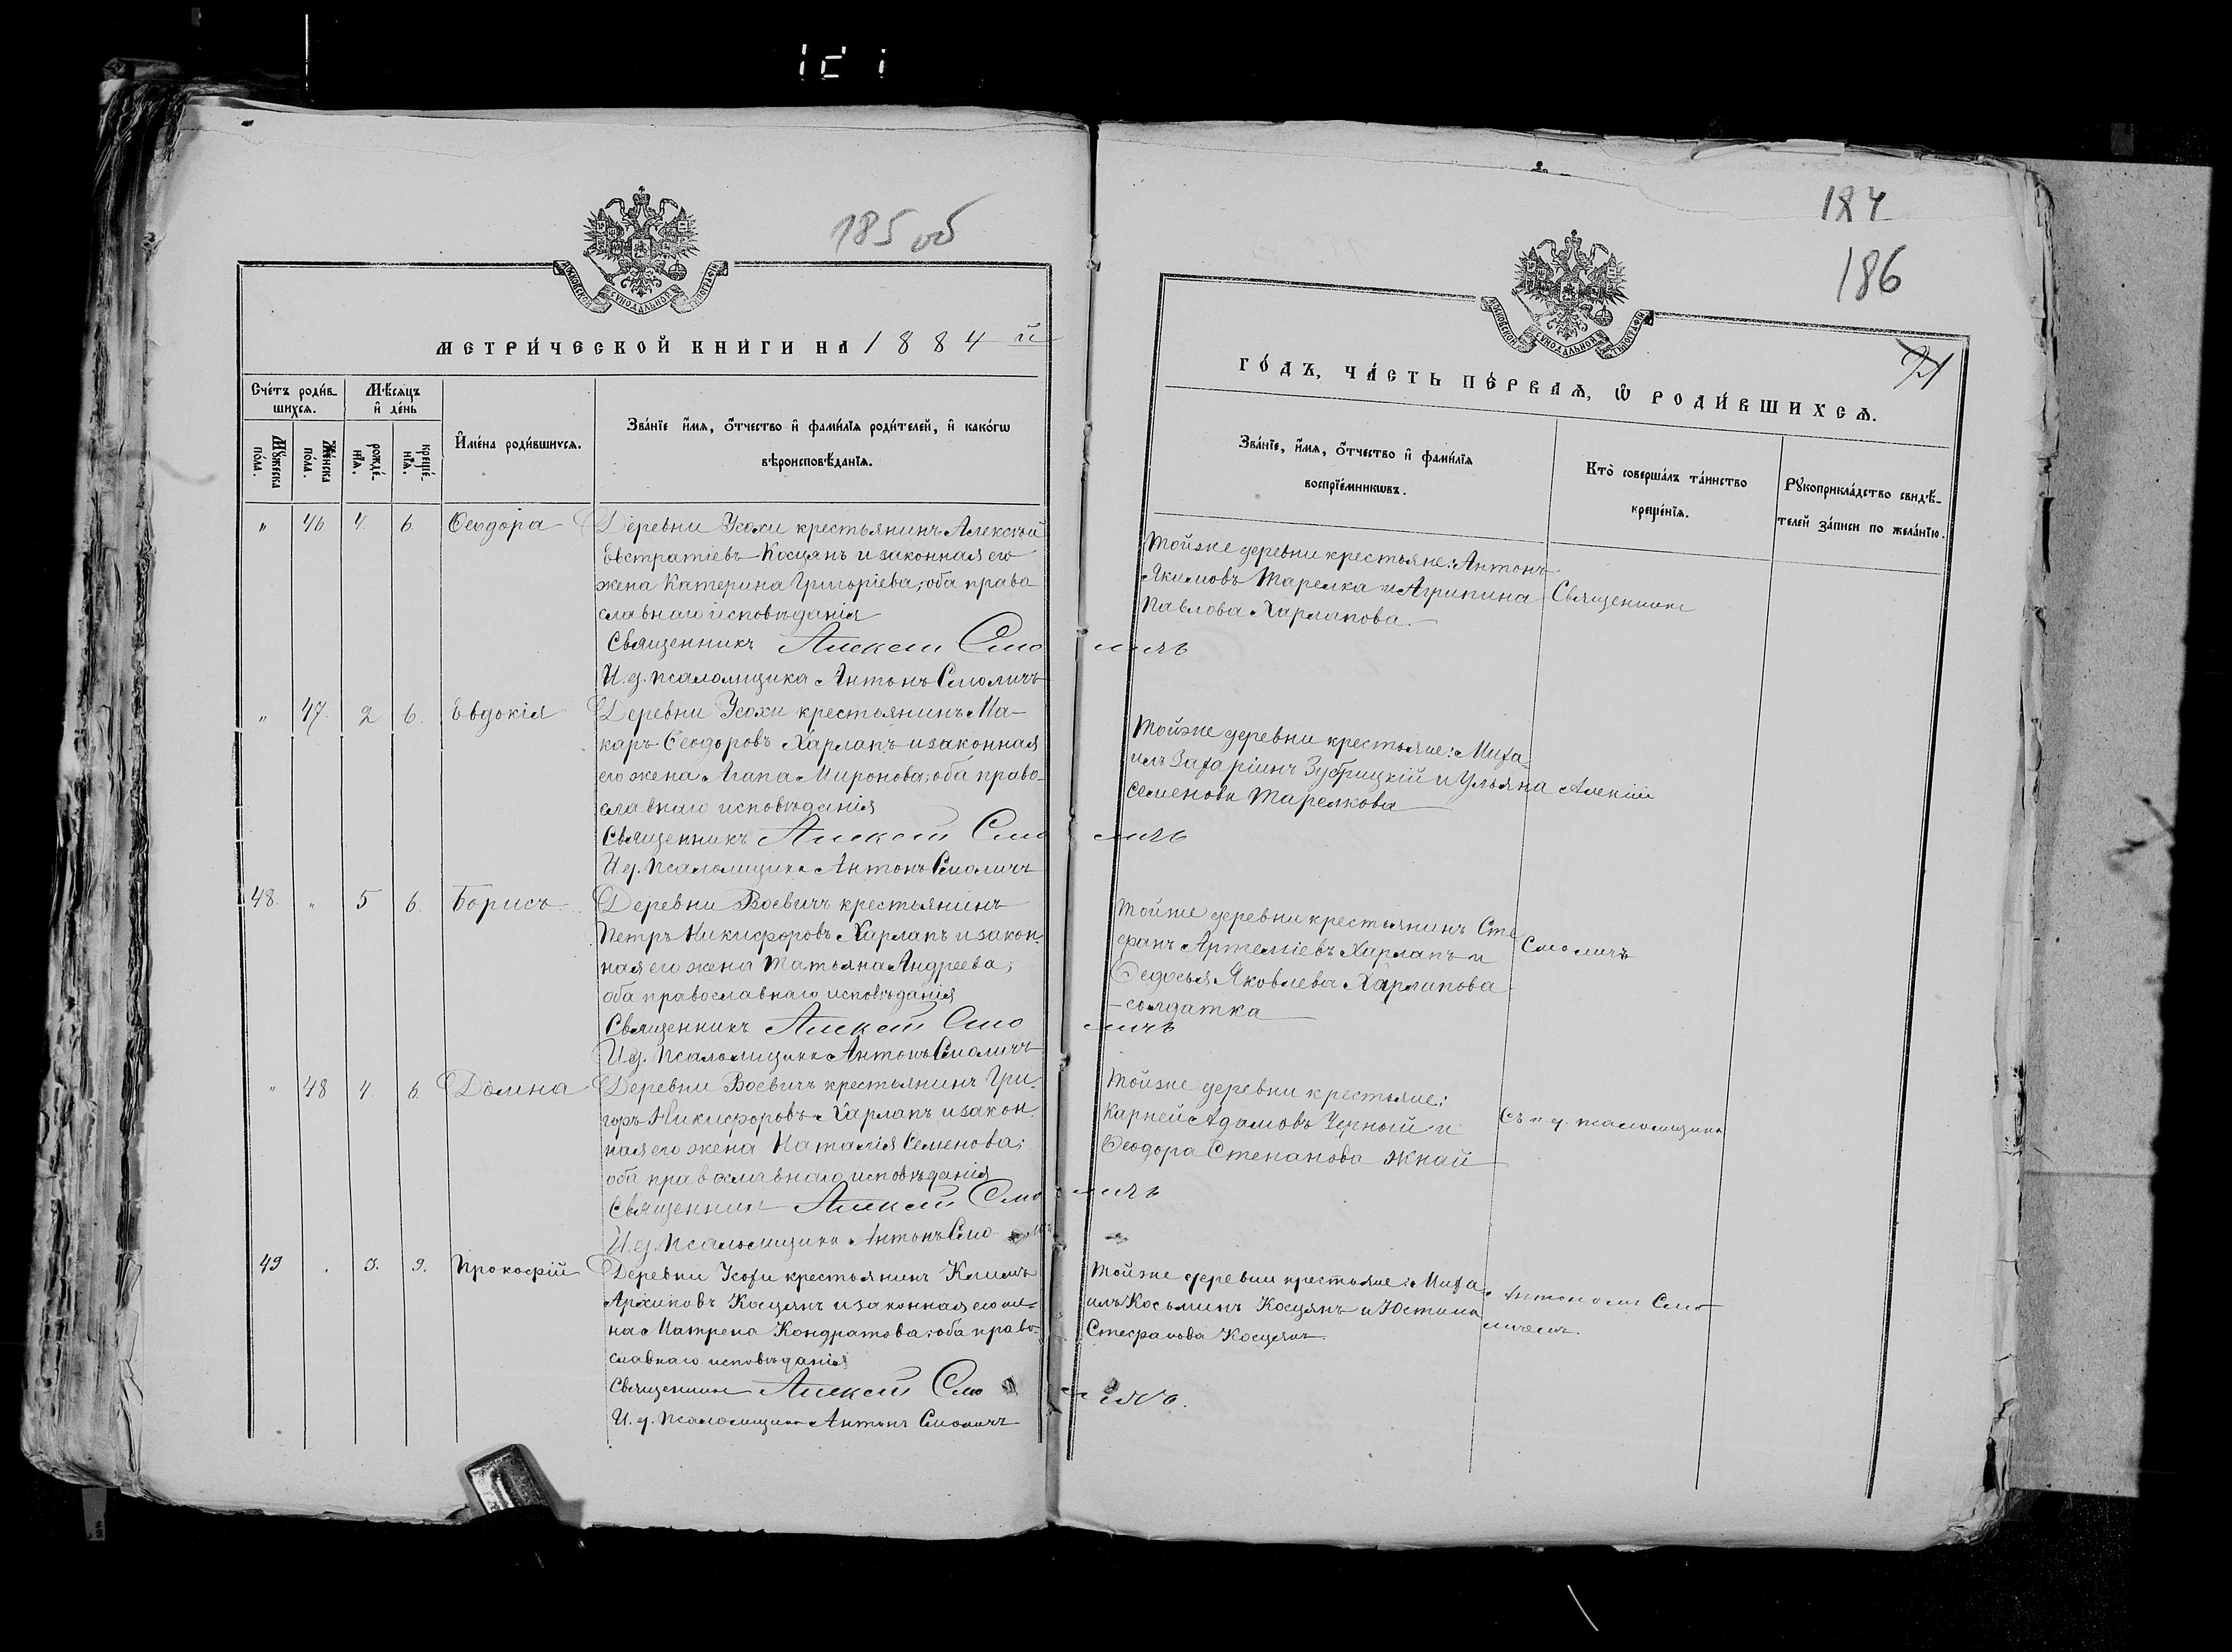 185 об
МЕТРИ́ЧЕСКОЙ КНИ́ГИ НА 1884 й
Сче́тъ роди́в-
шихся.
Мѣ́сяцъ
и҆ де́нь
Мꙋ́жеска
по́ла.
Же́нска
по́ла.
рожде́-
нїѧ.
креще́-
нїѧ.
И҆мена̀ роди́вшихсѧ.
Зва́нїе и҆́мѧ, ѻ҆́тчество и҆ фами́лїѧ роди́телей, и҆ како́гѡ
вѣроисповѣ́данїѧ.
" 46 4. 6. Ѳеодора
Деревни Усохи крестьянинъ Алексѣй
Евстратіевъ Косцянъ и законная его
жена Катерина Григоріева; оба право
славнаго исповѣданія
Священникъ Алексѣй Смоличъ
И. д. псаломщика Антонъ Смоличъ
" 47. 2 6. Евдокія
Деревни Усохи крестьянинъ Ма-
каръ Ѳеодоровъ Харлапъ и законная
его жена Агапа Миронова; оба право-
славнаго исповѣданія
Священникъ Алексѣй Смоличъ
И. д. псаломщика Антонъ Смоличъ
48. " 5 6. Борисъ
Деревни Воевичъ крестьянинъ
Петръ Никифоровъ Харлапъ и закон-
ная его жена Татьяна Андреева;
оба православнаго исповѣданія
Священникъ Алексѣй Смоличъ
И. д. псаломщика Антонъ Смоличъ
" 48 4. 6. Домна
Деревни Воевичъ крестьянинъ Гри-
горъ Никифоровъ Харлапъ и закон-
ная его жена Наталія Семенова;
оба православнаго исповѣданія
Священникъ Алексѣй Смоличъ
И. д. псаломщика Антонъ Смоличъ
49 " 9. Прокофій
Деревни Усохи крестьянинъ Климъ
Архиповъ Косцянъ и законная его же-
на Матрена Кондратова; оба право-
славнаго исповѣданія
Священникъ Алексѣй Смоличъ.
И. д. псаломщика Антонъ Смоличъ
184
186
ГО́ДЪ, ЧА́СТЬ ПЕ́РВАѦ, Ѡ҆ РОДИ́ВШИХСѦ.
Зва́нїе, и҆́мѧ, ѻ҆́тчество и҆ фами́лїѧ
воспрїе́мникѡвъ.
Кто̀ соверша́лъ та́инство
креще́нїѧ.
Рꙋкоприкла́дство свидѣ́-
телей за́писи по жела́нїю.
Тойже деревни крестьяне: Антонъ
Якимовъ Тарелка и Агрипина
Павлова Харлапова.
Священникъ
Тойже деревни крестьяне: Миха-
илъ Захаріинъ Зубрицкій и Ульяна
Семенова Тарелкова
Алексій
Тойже деревни крестьянинъ Сте
фанъ Артеміевъ Харлапъ и
Ѳедосья Яковлева Харлапова
-солдатка
Смоличъ
Тойже деревни крестьяне:
Карней Адамовъ Черный и
Ѳеодора Степанова Жнай
Съ и. д. псаломщика
Тойже деревни крестьяне: Миха-
илъ Косьминъ Косцянъ и Юстина
Стефанова Косцянъ.
Антономъ Смо-
личемъ.